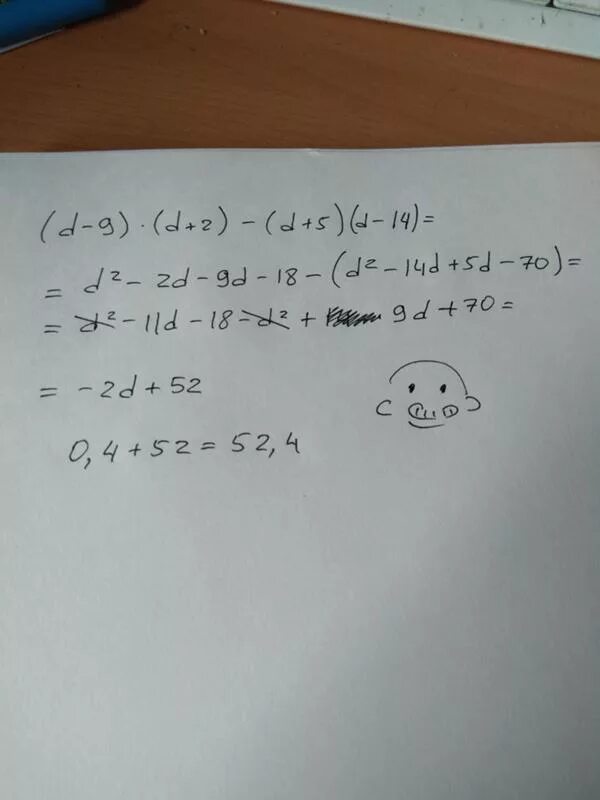 (d-9)·(d+2)-(d+5)(d-14)=
= d²-2d-9d-18-(d²-14d+5d-70)=
= d²-11d-18-d²+ 9d+70=
= -2d+52
0,4+52=52,4